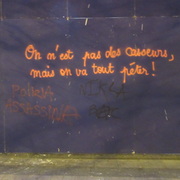 On n'est pas des casseurs,
mais on va tout péter !
POLICIA
ASASSINA